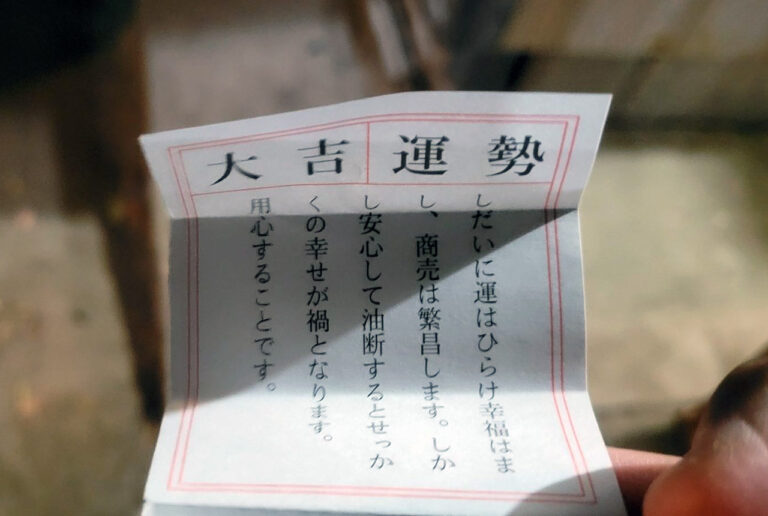 勢運
吉大
しだいに運はひらけ幸福はま
し、商売は繁昌します。しか
し安心して油断するとせっか
くの幸せが禍となります。
用心することです。